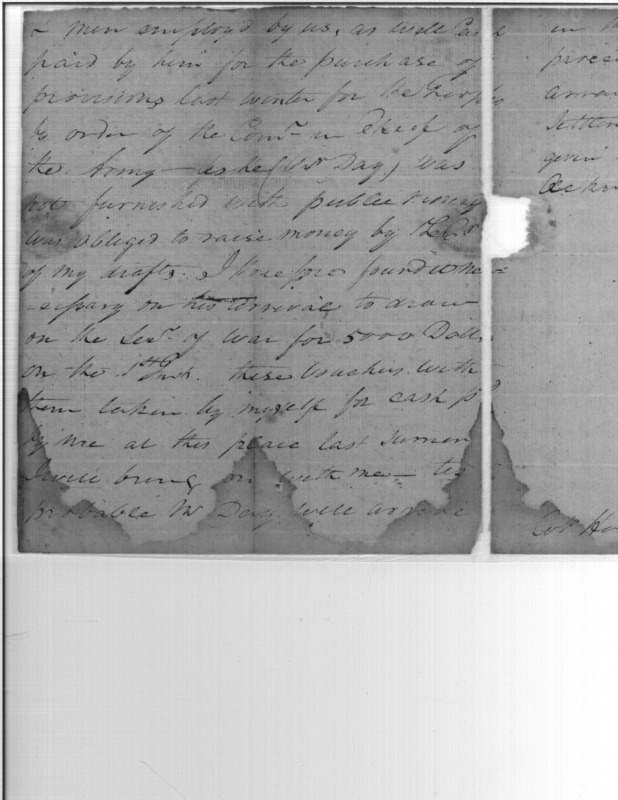 & men employd by us, as well Cash
paid by him for the purchase of
provisions last winter for the troops
by order of the Comr in Cheef of
the Army - as he (Mr Day) was
not furnished with publick money
was obliged to raise money by the
of my drafts. I therefore found it ne=
-cessary on his arrival to draw
on the Secy of War for 5000 Dolls
on the Inst. these Vouchers with
them taken by myself for cash pd
by me at this place last
I will bring on with me - tis
probable Mr Day will arrive
in
Settlem
given
Col Ho